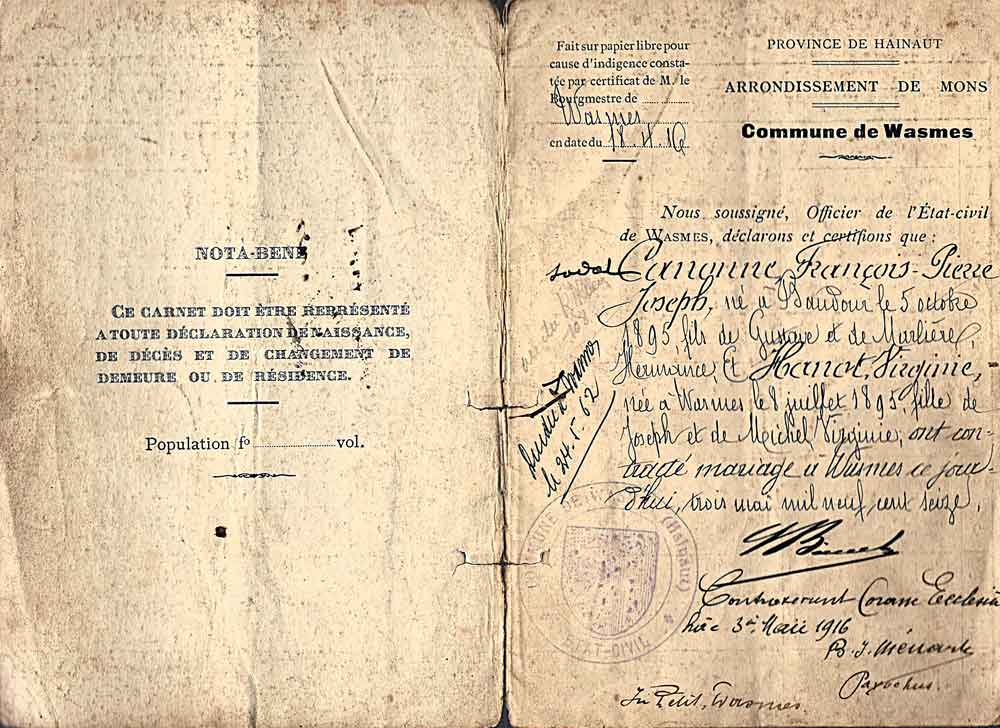 NOTA-BENE
CE CARNET DOIT ÊTRE REPRÉSENTÉ
A TOUTE DÉCLARATION DE NAISSANCE,
DE DÉCÈS ET DE CHANGEMENT DE
DEMEURE OU DE RÉSIDENCE.
Population fo vol.
Fait sur papier libre pour
cause d'indigence consta-
tée par certificat de M. le
Bourgmestre de
Wasmes
en date du 18.4.16
PROVINCE DE HAINAUT
ARRONDISSEMENT DE MONS
Commune de Wasmes
Nous soussigné, Officier de l'État-civil
de WASMES, déclarons et certifions que :
Canonne, François-Pierre
Joseph, né à Baudour le 5 octobre
1895, fils de Gustave et de Marlière,
Hermance, Et Hanot, Virginie,
née à Wasmes le 8 juillet 1895, fille de
Joseph et de Michel Virginie, ont con-
tracté mariage à Wasmes ce jour
d'hui, trois mai mil neuf cent seize.
à Wasmes
le 24.5.62
COMMUNE DE (Hainaut)
Contraxerunt Coram Ecclesia
hâc 3a Maii 1916
B. J. Ménart
Parochus.
In Petit, Wasmes